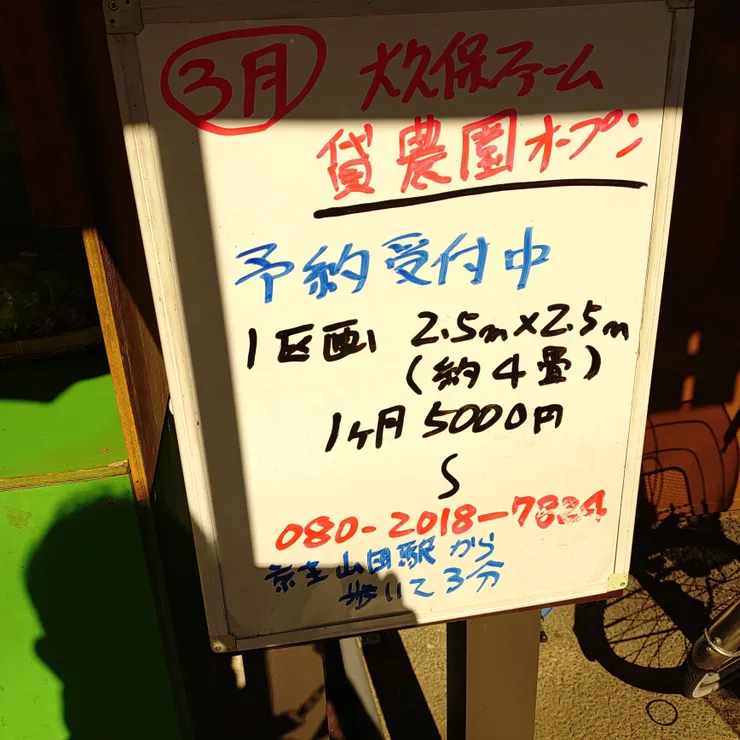 3月 大久保ファーム
貸農園オープン
予約受付中
1区画 2.5m×2.5m
(約4畳)
1ヶ月 5000円
〜
080-2018-7824
京王山田駅から
歩いて3分